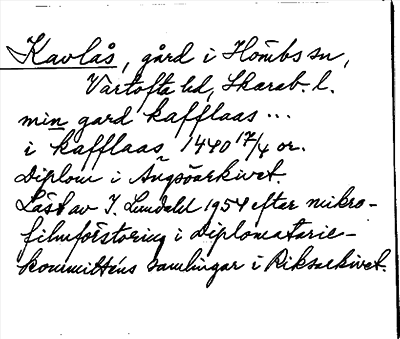 Kavlås, gård i Hömbs sn,
Vartofta hd, Skarab. l.
min gard kafflaas ...
i kafflaas 1440 17/4 or.
Diplom i Ängsöarkivet.
Läst av I. Lundahl 1954 efter mikro-
filmförstoring i Diplomatarie-
kommitténs samlingar i Riksarkivet.